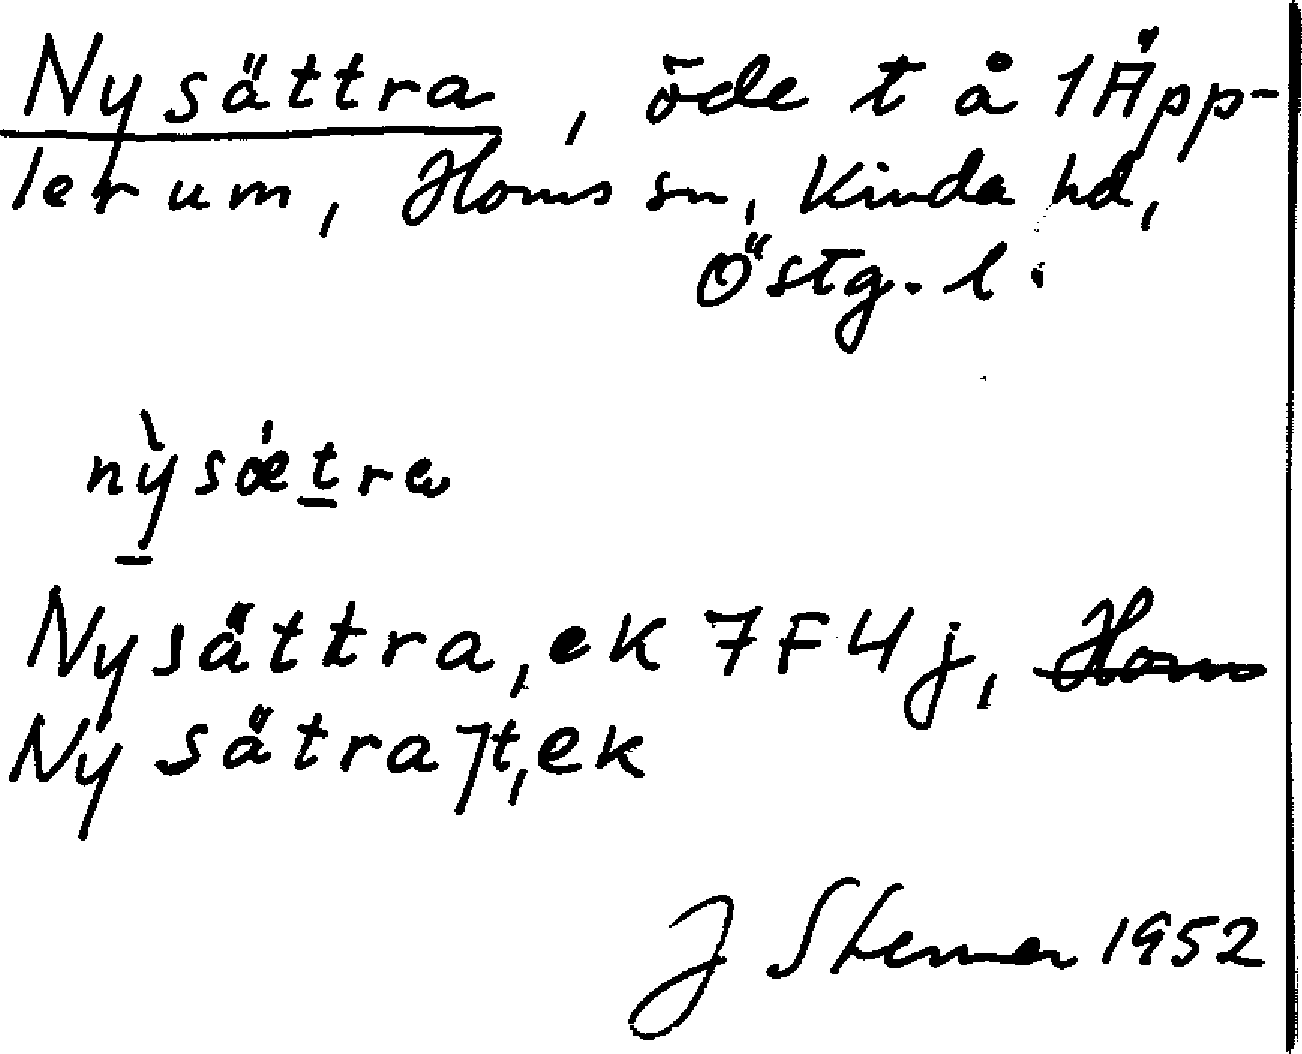 Nysättra, öde t å 1 Äpp-
lerum, Horns sn, Kinda hd,
Östg. l.
nỳsǽtra
Nysättra, ek 7F4j, Horns
Ny sätra Jt, ek
J Stenner 1952